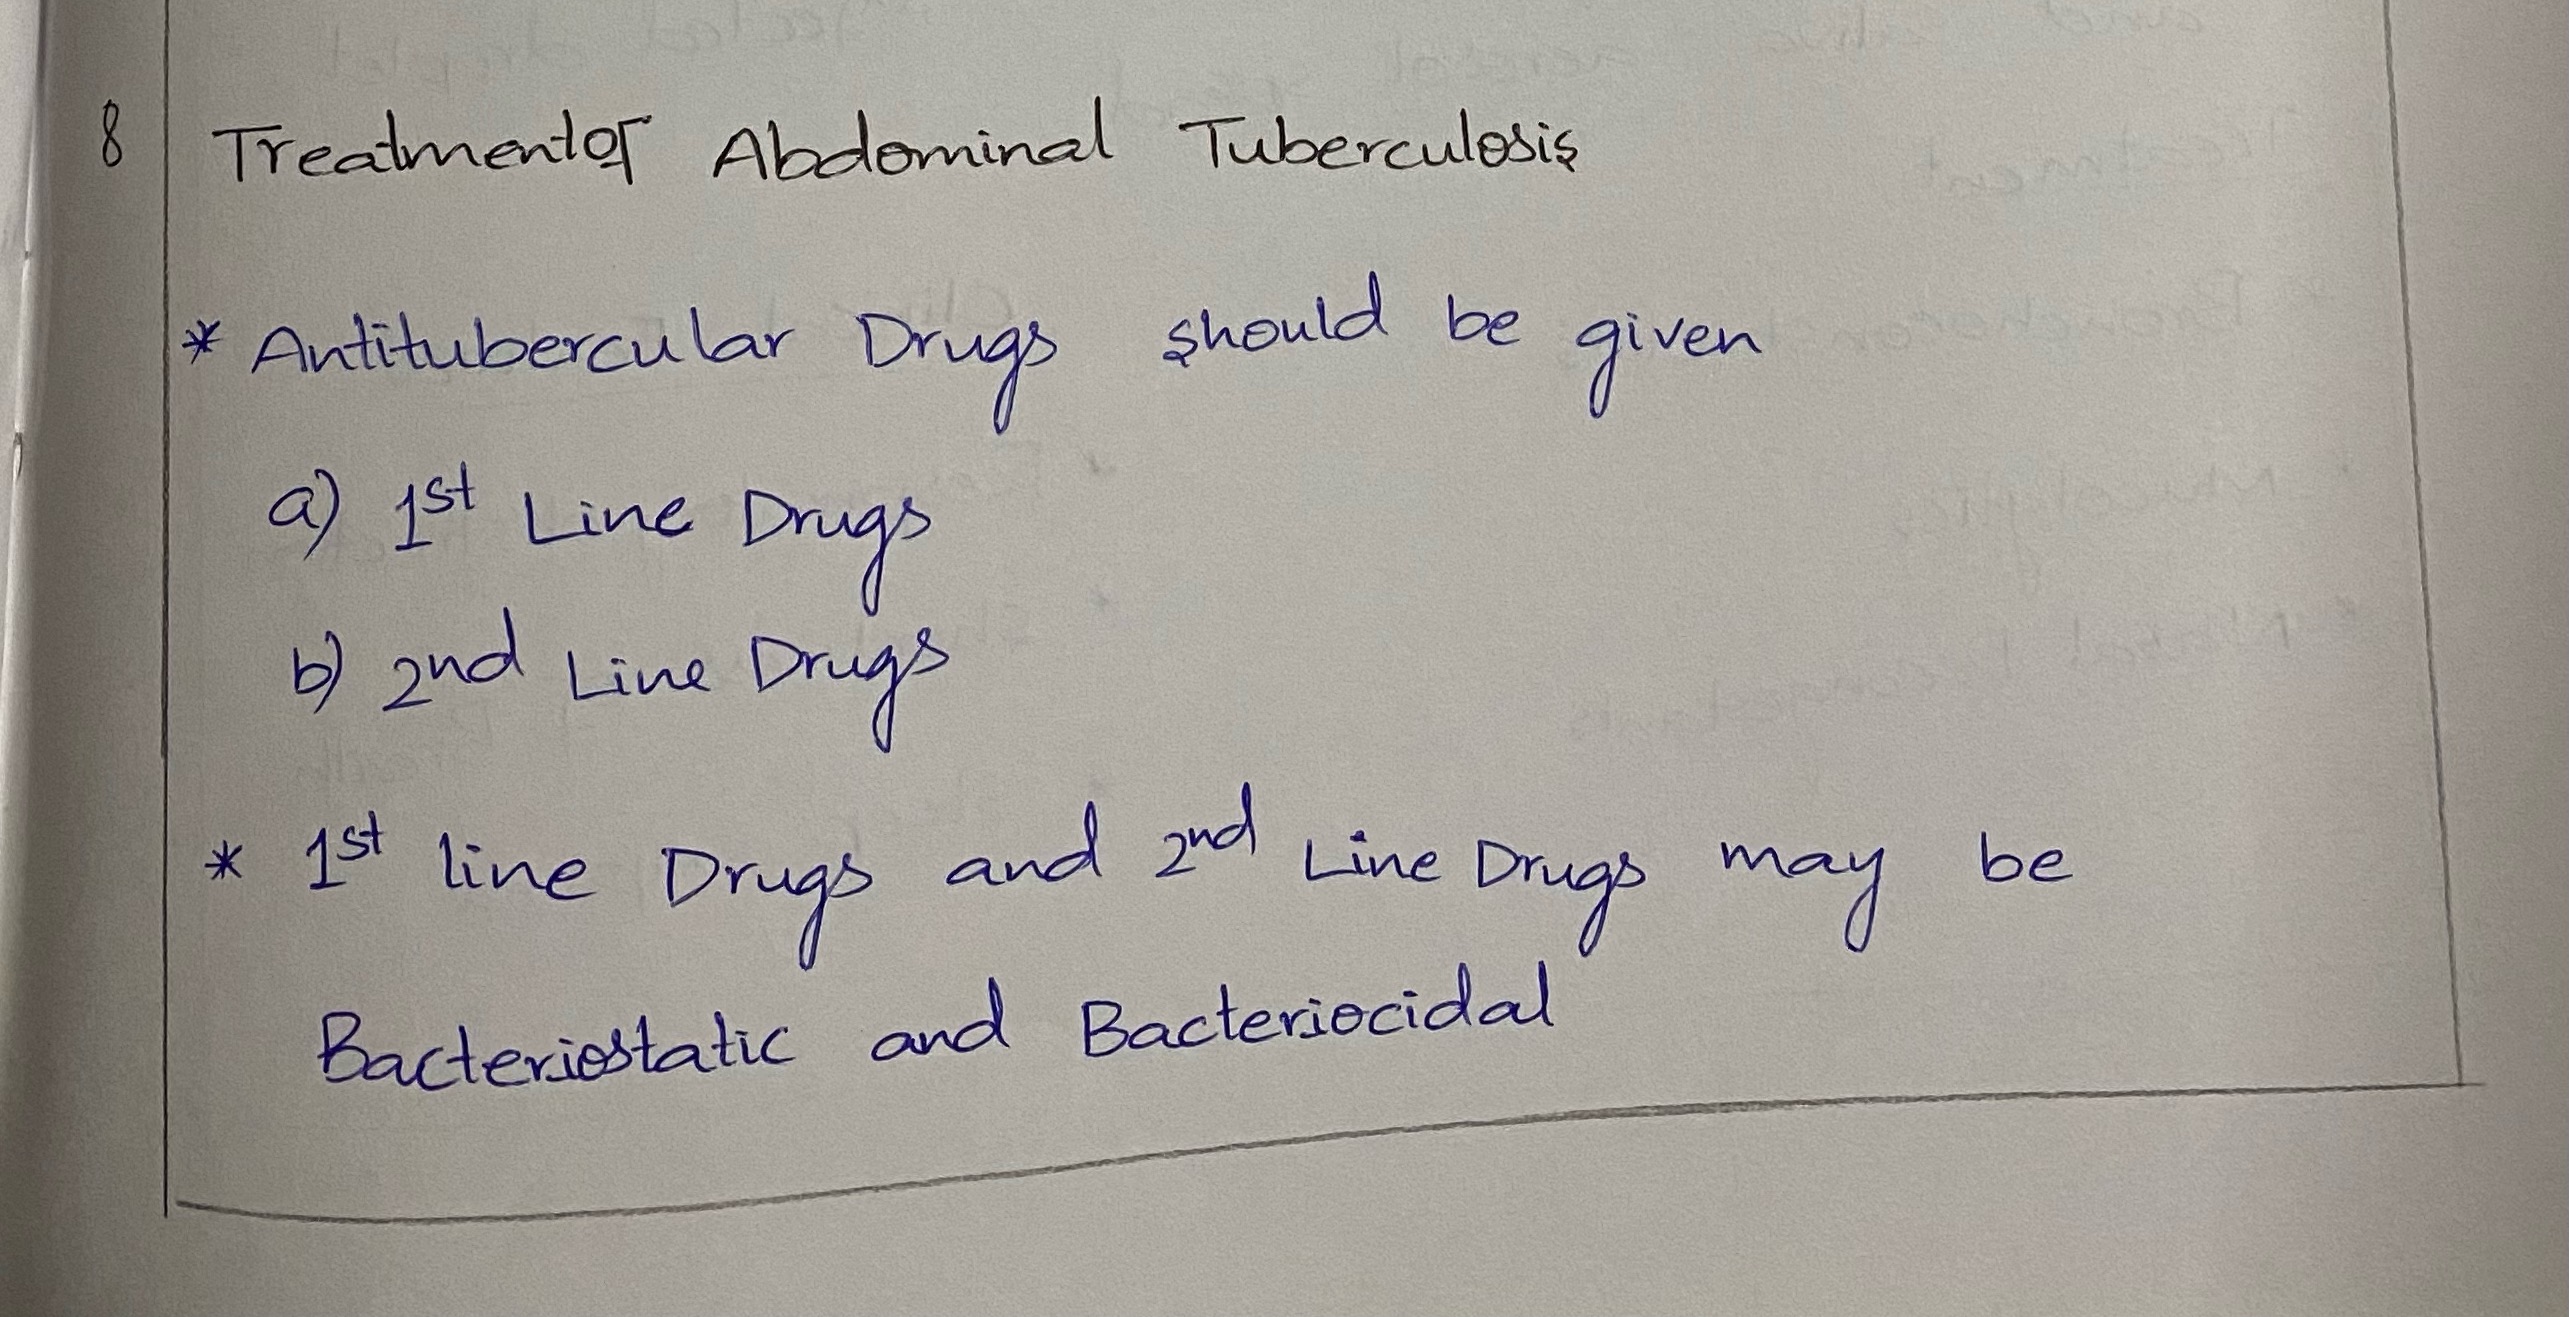 8 Treatment of Abdominal Tuberculosis
* Antitubercular Drugs should be given
a) 1st Line Drugs
b) 2nd Line Drugs
* 1st line Drugs and 2nd Line Drugs may be
Bacteriostatic and Bacteriocidal